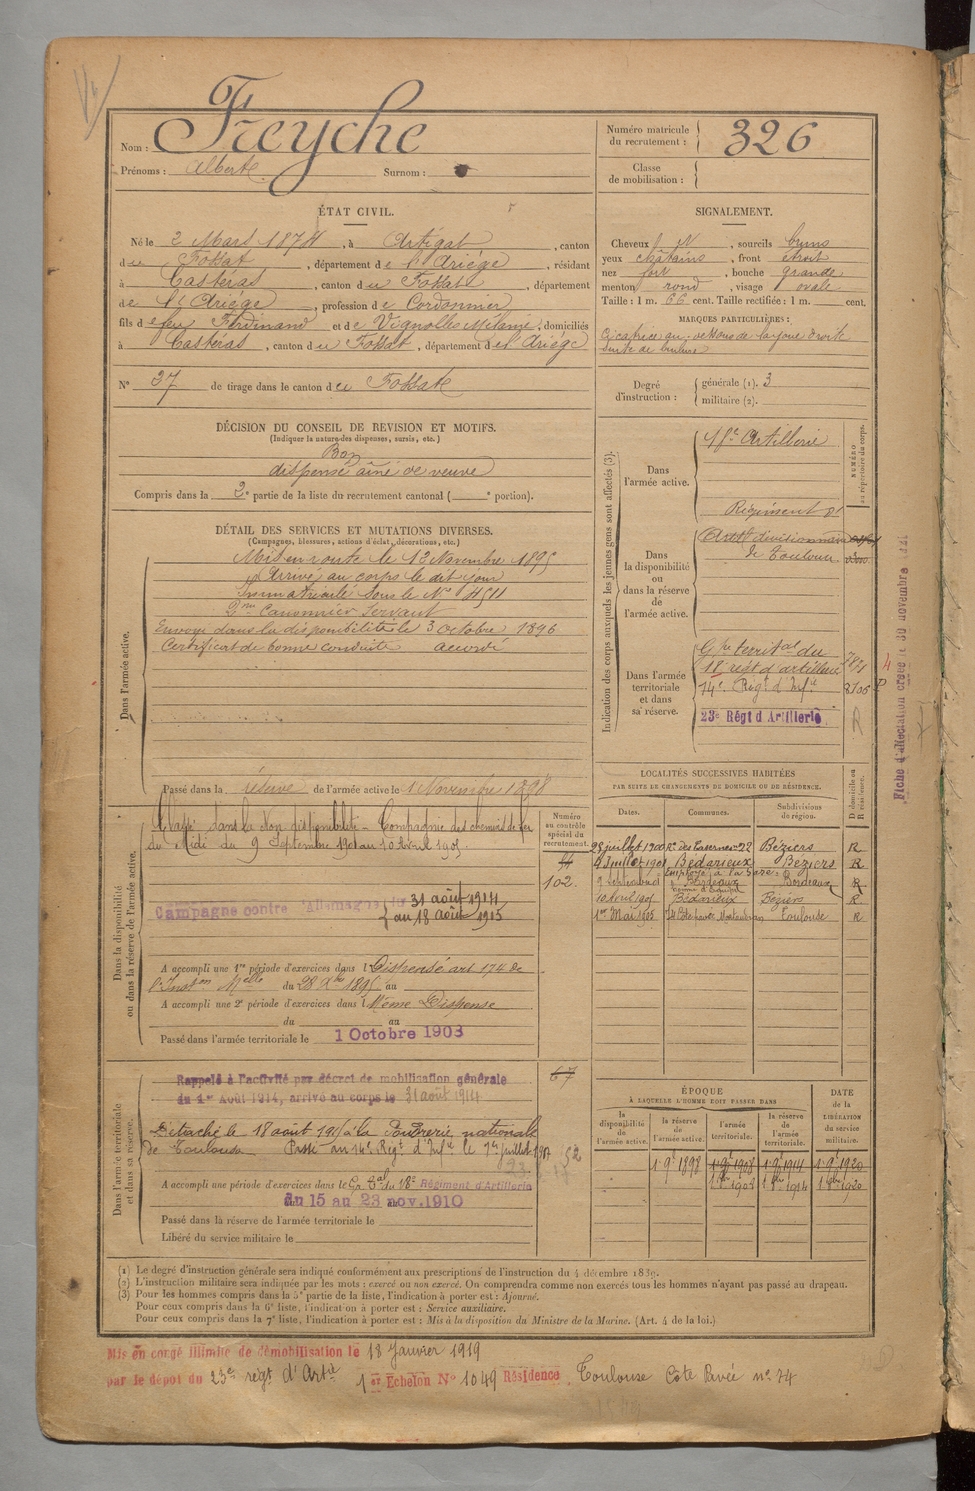 Nom : Freyche
Prénoms : Albert Surnom :
Numéro matricule du recrutement : 326
Classe de mobilisation :
ÉTAT CIVIL.
Né le 2 Mars 1874, à Artigat, canton
du Fossat, département de l'Ariège, résidant
à Castéras, canton du Fossat, département
de l'Ariège, profession de Cordonnier
fils de feu Ferdinand et de Vignolles Mélanie, domiciliés
à Castéras, canton du Fossat, département de l'Ariège
N° 37 de tirage dans le canton du Fossat
SIGNALEMENT.
Cheveux, sourcils bruns
yeux châtains, front étroit
nez fort, bouche grande
menton rond, visage ovale
Taille : 1 m. 66 cent. Taille rectifiée : 1 m. cent.
MARQUES PARTICULIÈRES :
Cicatrice au-dessous de la joue droite
Degré d'instruction : générale (1). 3
militaire (2).
DÉCISION DU CONSEIL DE REVISION ET MOTIFS.
(Indiquer la nature des dispenses, sursis, etc.)
Bon
dispensé aîné de veuve
Compris dans la 2e partie de la liste du recrutement cantonal ( e portion).
DÉTAIL DES SERVICES ET MUTATIONS DIVERSES.
(Campagnes, blessures, actions d'éclat, décorations, etc.)
Dans l'armée active.
Mis en route le 12 Novembre 1895
Arrivé au corps le dit jour
Immatriculé sous le N° 4511
2me Canonnier Servant
Envoyé dans la disponibilité le 3 octobre 1896
Certificat de bonne conduite accordé
Passé dans la réserve de l'armée active le 1 Novembre 1898
Indication des corps auxquels les jeunes gens sont affectés (3).
NUMÉRO au répertoire du corps.
Dans l'armée active.
18e Artillerie
Dans la disponibilité ou dans la réserve de l'armée active.
Régiment d'
Artie divisionnaire
de Toulouse
Dans l'armée territoriale et dans sa réserve.
Gpe territal du
18e régt d'artillerie
14e Régt d'Infie 2106
23e Régt d'Artillerie R
Fiche d'affectation créée le 30 novembre
Dans la disponibilité ou dans la réserve de l'armée active.
Classé dans la Non disponibilité - Compagnie des chemins de fer
du Midi du 9 Septembre 1901 au 10 Avril 1905.
Campagne contre Allemagne du 31 août 1914
au 18 août 1915
A accompli une 1re période d'exercices dans l Dispensé art 174 de
l'Inston Melle du 28 Xbre 1895 au
A accompli une 2e période d'exercices dans l Même Dispense
du au
Passé dans l'armée territoriale le 1 Octobre 1903
Numéro au contrôle spécial du recrutement.
102
67
52
LOCALITÉS SUCCESSIVES HABITÉES
PAR SUITE DE CHANGEMENTS DE DOMICILE OU DE RÉSIDENCE.
D domicile ou R résidence.
Dates. Communes. Subdivisions de région.
28 juillet 1900 Rue des Casernes 22 Béziers R
4 Juillet 1901 Bédarieux Béziers R
Employé à la Gare
9 septembre Bordeaux Bordeaux R
10 Avril 1905 Bédarieux Béziers R
1er Mai 1905 Toulouse R
Dans l'armée territoriale et dans sa réserve.
Rappelé à l'activité par décret de mobilisation générale
du 1er Août 1914, arrivé au corps le 31 août 1914
Détaché le 18 août 1915 à la Poudrerie nationale
de Toulouse Passé au 14e Régt d'Infie le 1er juillet 1917
A accompli une période d'exercices dans le Gpe Tal du 18e Régiment d'Artillerie
du 15 au 23 nov. 1910
Passé dans la réserve de l'armée territoriale le
Libéré du service militaire le
ÉPOQUE
À LAQUELLE L'HOMME DOIT PASSER DANS
la disponibilité de l'armée active. la réserve de l'armée active. l'armée territoriale. la réserve de l'armée territoriale. DATE de la LIBÉRATION du service militaire.
1.9e 1898 1.9e 1908 1.9e 1914 1.9e 1920
(1) Le degré d'instruction générale sera indiqué conformément aux prescriptions de l'instruction du 4 décembre 1889.
(2) L'instruction militaire sera indiquée par les mots : exercé ou non exercé. On comprendra comme non exercés tous les hommes n'ayant pas passé au drapeau.
(3) Pour les hommes compris dans la 5e partie de la liste, l'indication à porter est : Ajourné.
Pour ceux compris dans la 6e liste, l'indication à porter est : Service auxiliaire.
Pour ceux compris dans la 7e liste, l'indication à porter est : Mis à la disposition du Ministre de la Marine. (Art. 4 de la loi.)
Mis en congé illimité de démobilisation le 18 Janvier 1919
par le dépôt du 23e régt d'Artie 1er Echelon N° 1049 Résidence, Toulouse Côte Pavée n° 74